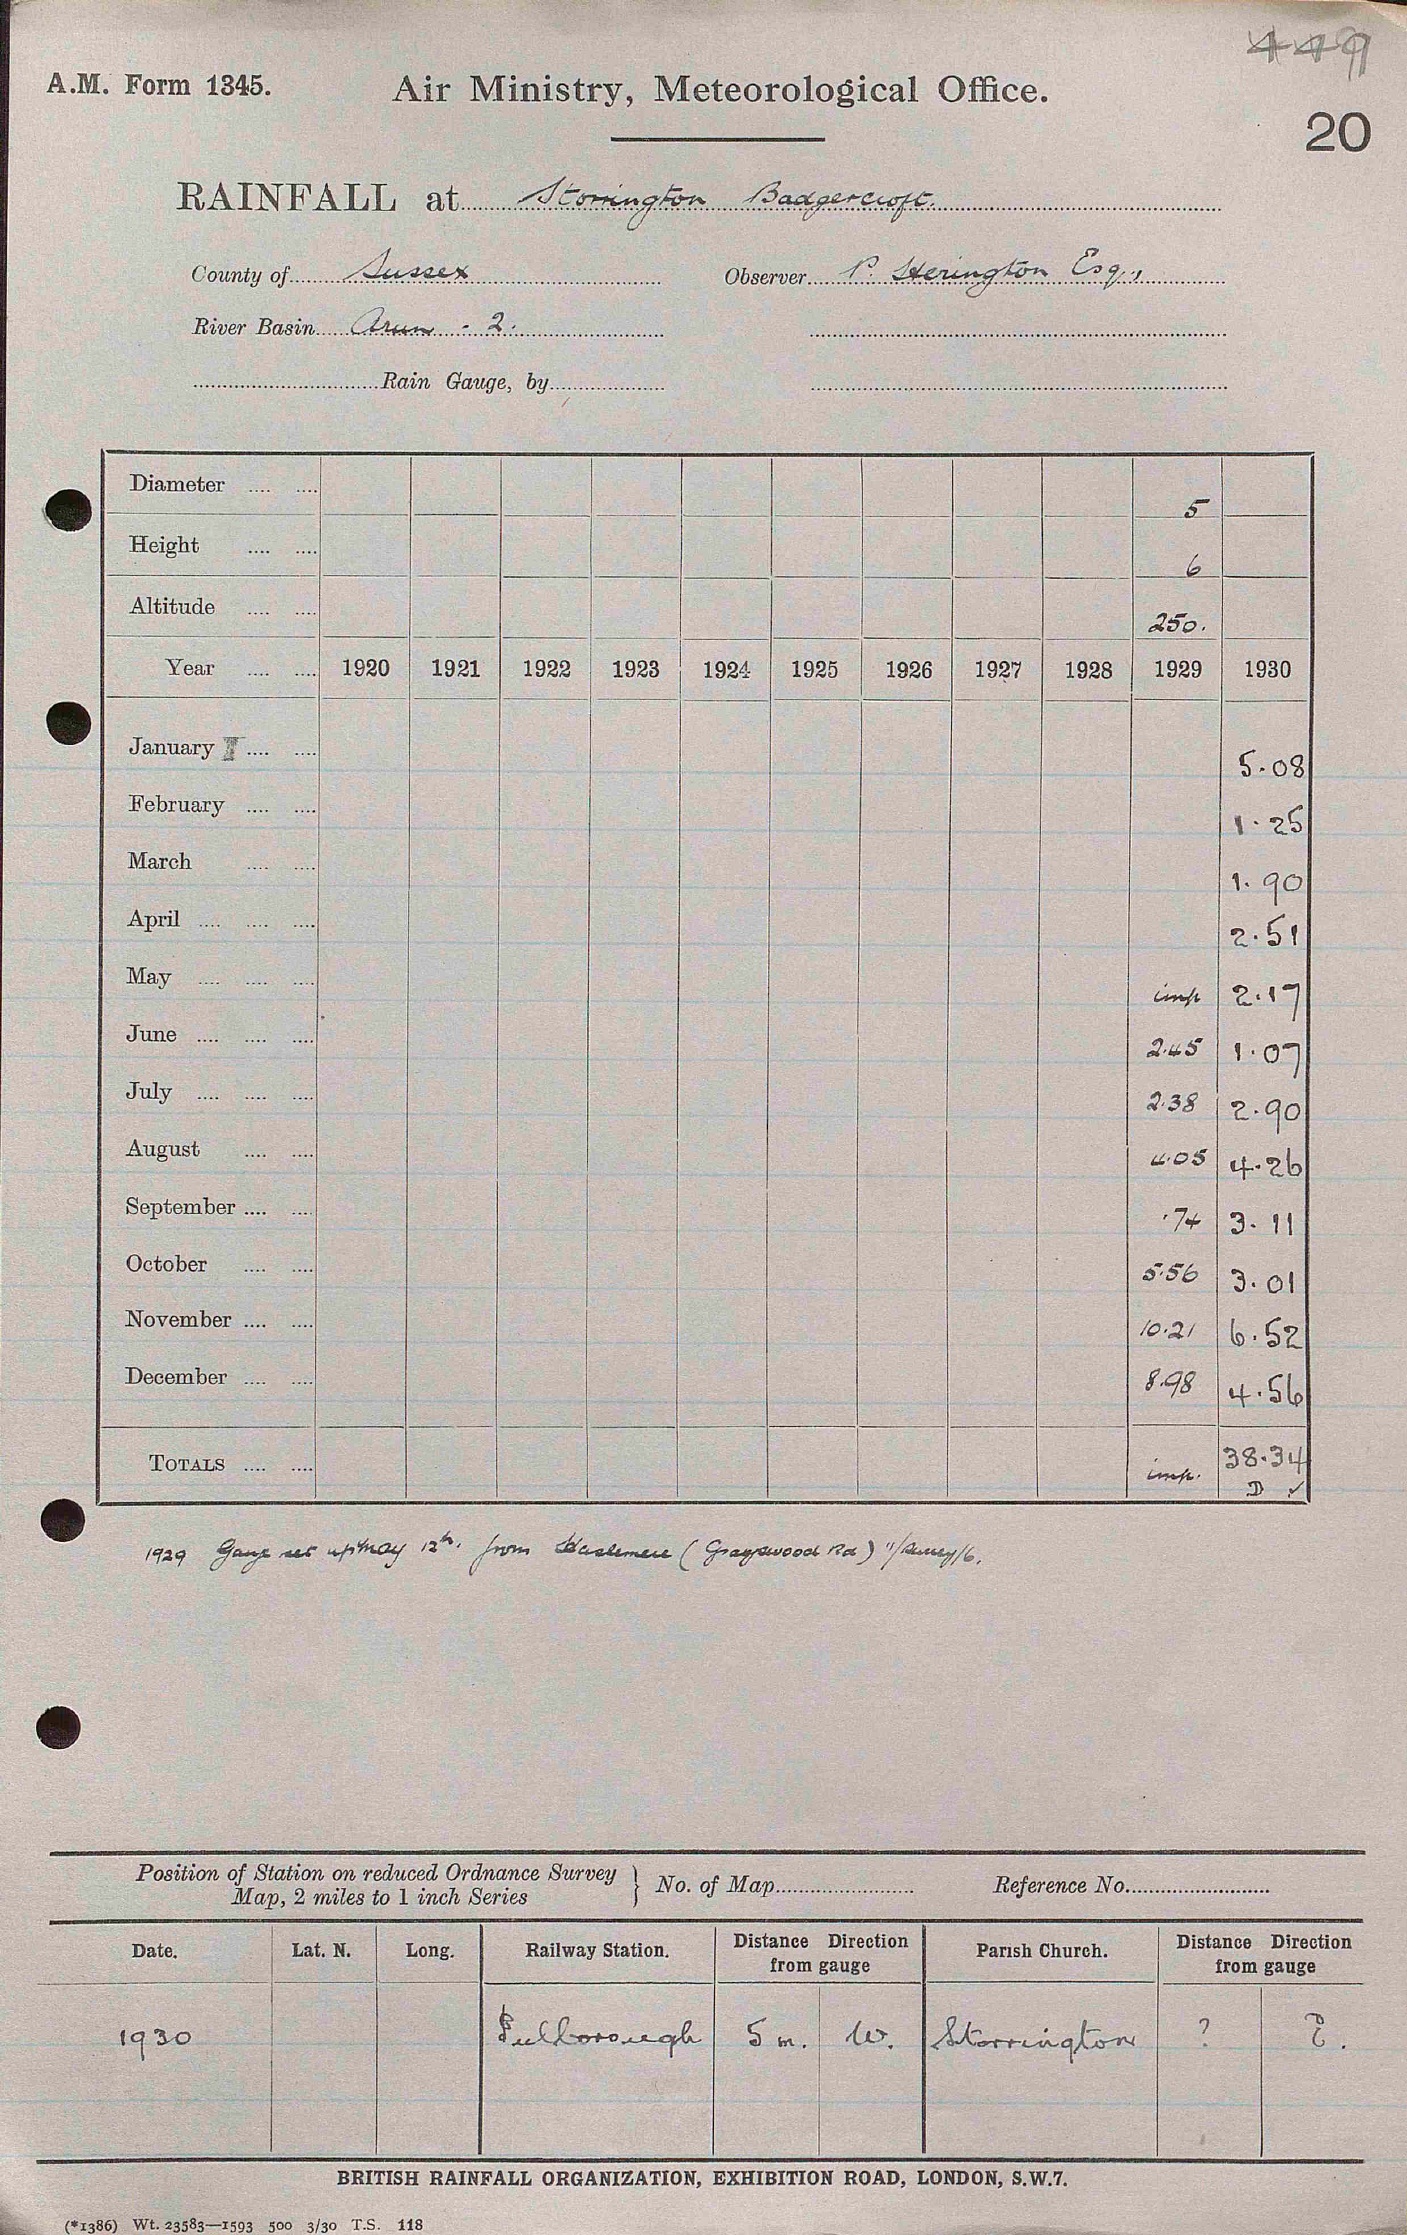 449
A.M. Form 1345. Air Ministry, Meteorological Office.
20
RAINFALL at Storrington Badgercroft.
County of Sussex Observer P. Herington Esq.,
River Basin Arun - 2.
Rain Gauge, by
Diameter .... .... 5
Height .... .... 6
Altitude .... .... 250.
Year .... .... 1920 1921 1922 1923 1924 1925 1926 1927 1928 1929 1930
January .... .... 5.08
February .... .... 1.25
March .... .... 1.90
April .... .... .... 2.51
May .... .... .... imp 2.17
June .... .... .... 2.45 1.07
July .... .... .... 2.38 2.90
August .... .... 4.05 4.26
September .... .... .74 3.11
October .... .... 5.56 3.01
November .... .... 10.21 6.52
December .... .... 8.98 4.56
TOTALS .... .... imp. 38.34
D ✓
1929 Gauge set up May 12th. from Haslemere (Grayswood Rd) "/Surrey/6.
Position of Station on reduced Ordnance Survey
Map, 2 miles to 1 inch Series } No. of Map Reference No.
Date. Lat. N. Long. Railway Station. Distance Direction from gauge Parish Church. Distance Direction from gauge
1930 Pulborough 5 m. W. Storrington ? E.
BRITISH RAINFALL ORGANIZATION, EXHIBITION ROAD, LONDON, S.W.7.
(*1386) Wt. 23583—1593 500 3/30 T.S. 118